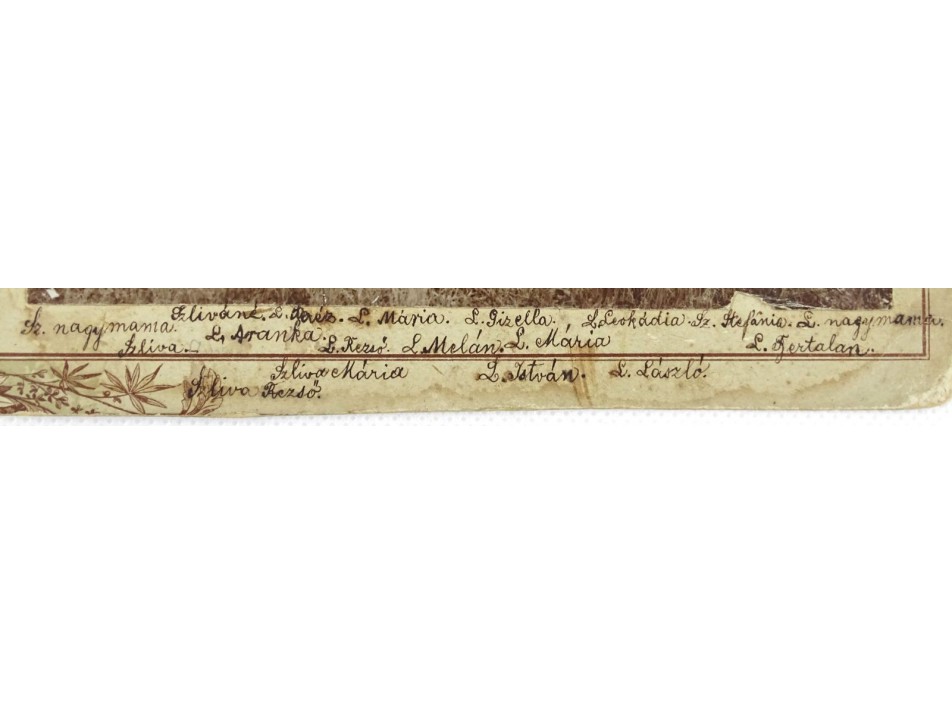 Sz. nagymama. Szliváné. L. Géza. L. Mária. L. Gizella. L. Leokádia. Sz. Stefánia. L. nagymama.
Szliva. L. Aranka. L. Rezső. L. Melán. L. Mária L. Bertalan.
Szliva Mária L. István. L. László.
Szliva Rezső.